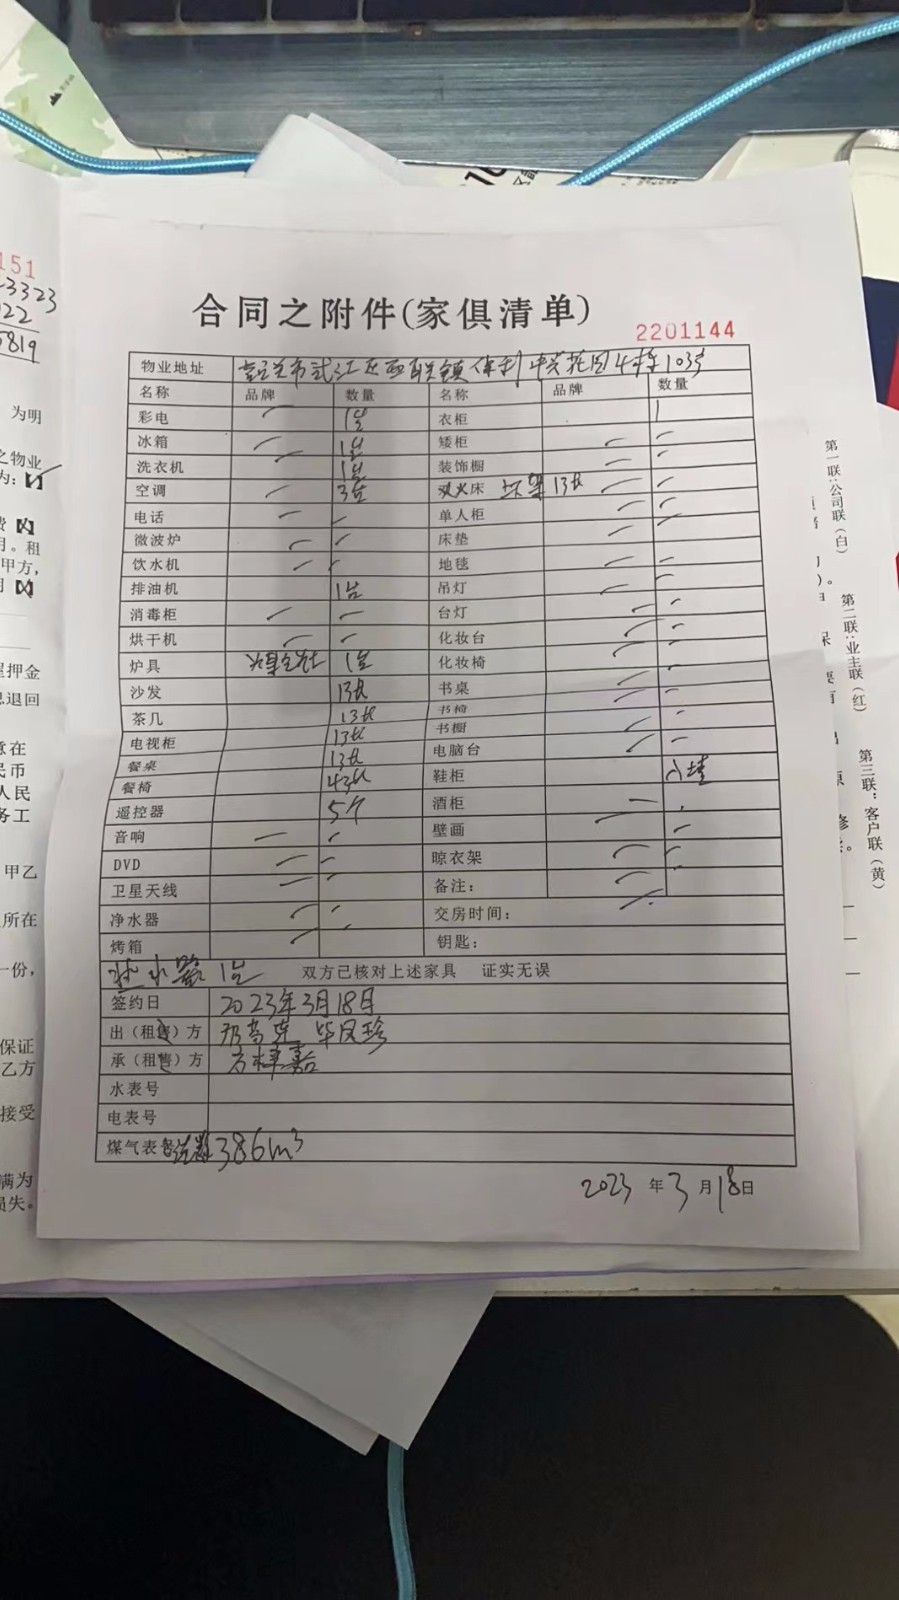 151
3323
22
5819
合同之附件(家俱清单)
2201144
物业地址 韶关市武江区西联镇保利中央花园4栋103
名称 品牌 数量 名称 品牌 数量
彩电 1台 衣柜 1
冰箱 1台 矮柜
洗衣机 1台 装饰橱
空调 3台 床 1张
电话 单人柜
微波炉 床垫
饮水机 地毯
排油机 1台 吊灯
消毒柜 台灯
烘干机 化妆台
炉具 1台 化妆椅
沙发 1张 书桌
茶几 1张 书椅
电视柜 1张 书橱
餐桌 1张 电脑台
餐椅 4张 鞋柜
遥控器 5个 酒柜
音响 壁画
DVD 晾衣架
卫星天线 备注：
净水器 交房时间：
烤箱 钥匙：
热水器1台 双方已核对上述家具 证实无误
签约日 2023年3月18日
出（租售）方 毕凤珍
承（租售）方
水表号
电表号
煤气表 386m³
2023 年 3 月 18 日
第一联：公司联（白）
第二联：业主联（红）
第三联：客户联（黄）
为明
之物业
为：
月。租
甲方，
押金
退回
在
民币
人民
务工
甲乙
所在
一份，
保证
乙方
接受
满为
损失。